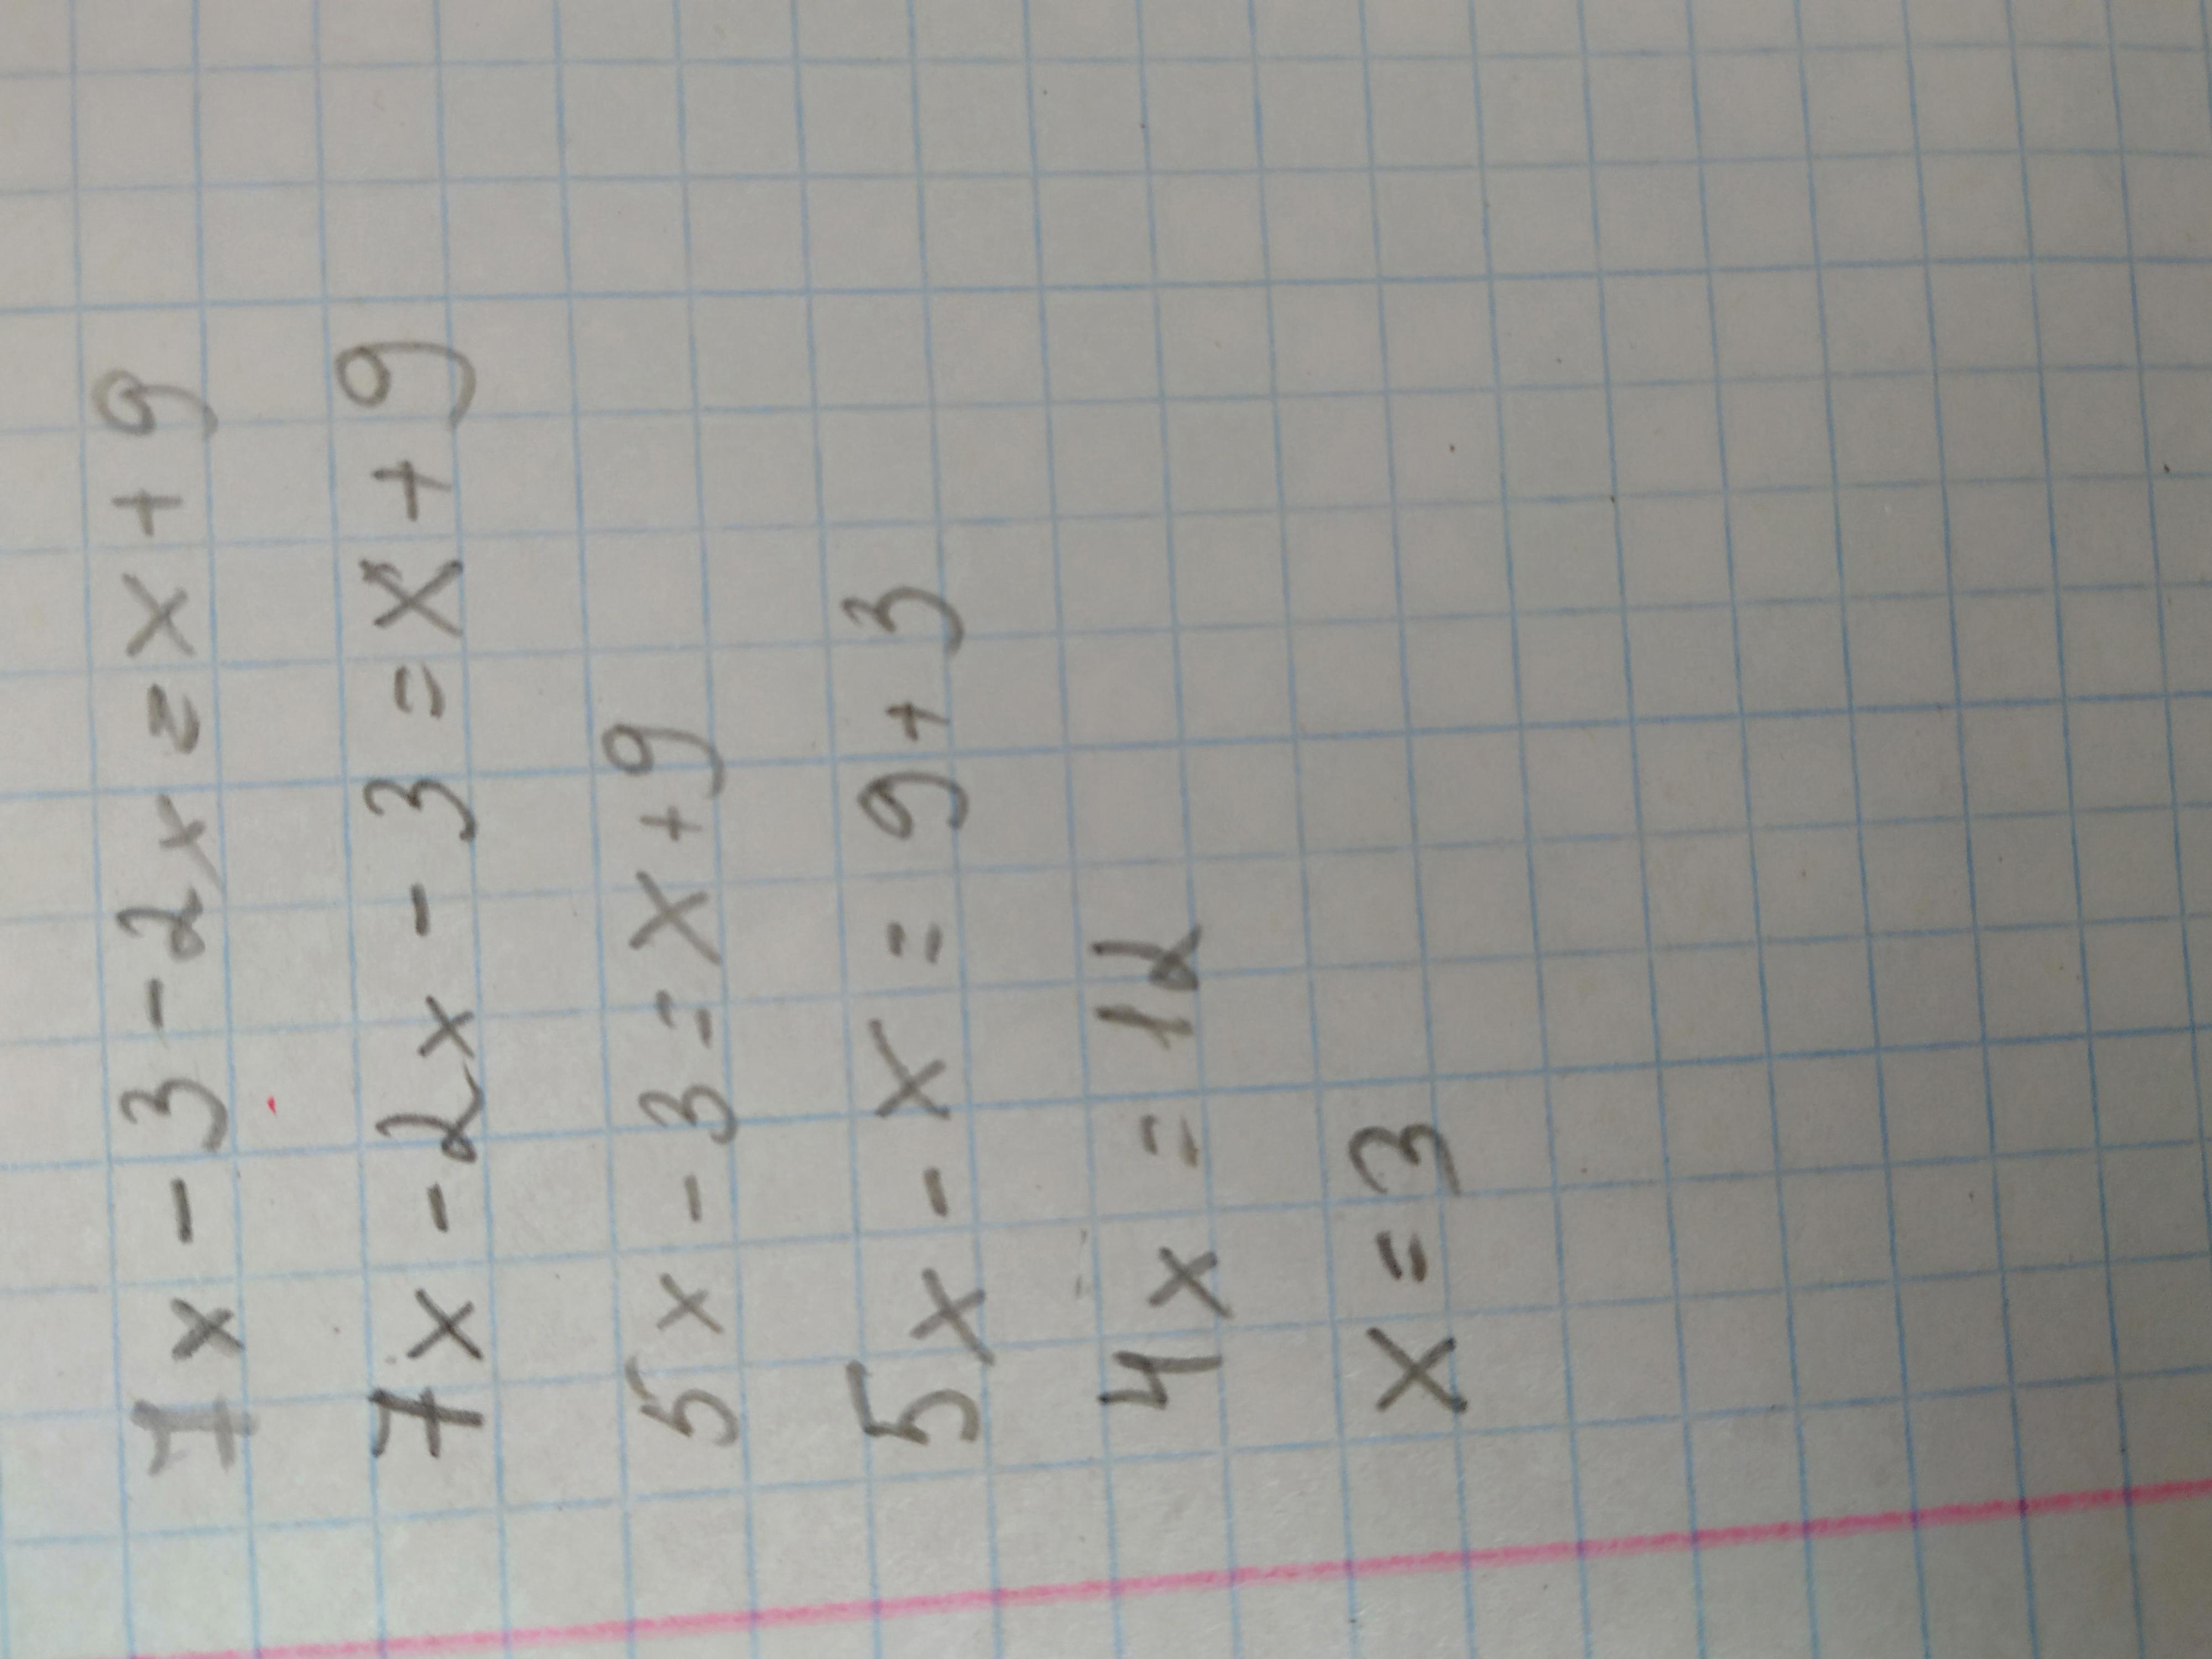 7x - 3 - 2x = x + 9
7x - 2x - 3 = x + 9
5x - 3 = x + 9
5x - x = 9 + 3
4x = 12
x = 3